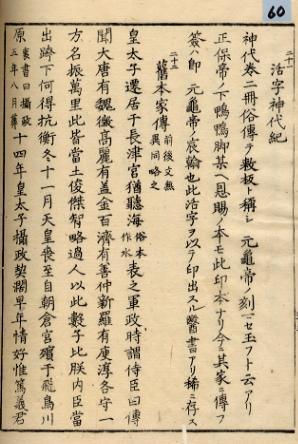 60
二十一
活字神代紀
神代巻二冊俗傳ヲ敕板ト稱シ 元龜帝ノ刻ニセ玉フト云アリ
正保帝ノ下鴨鴨脚某ヘ恩賜ノ本モ此印本ナリ今ニ其家ニ傳フ
簽ハ即 元龜帝ノ宸翰也此活字ヲ以テ印出スル醫書アリ稀ニ存ス
二十三
舊本家傳 前後文無異同略之
皇太子遷居于長津宮猶聽海俗本作水表之軍政時謂侍臣曰傳
聞大唐有魏徵高麗有蓋金百濟有善仲新羅有庾淳各守一
方名振萬里此皆當土俊傑智略過人以此數子比朕内臣當
出跨下何得抗衡冬十一月天皇喪至自朝倉宮殯于飛鳥川
原裏書曰攝政三年八月葬十四年皇太子攝政契闊早年情好惟篤義君